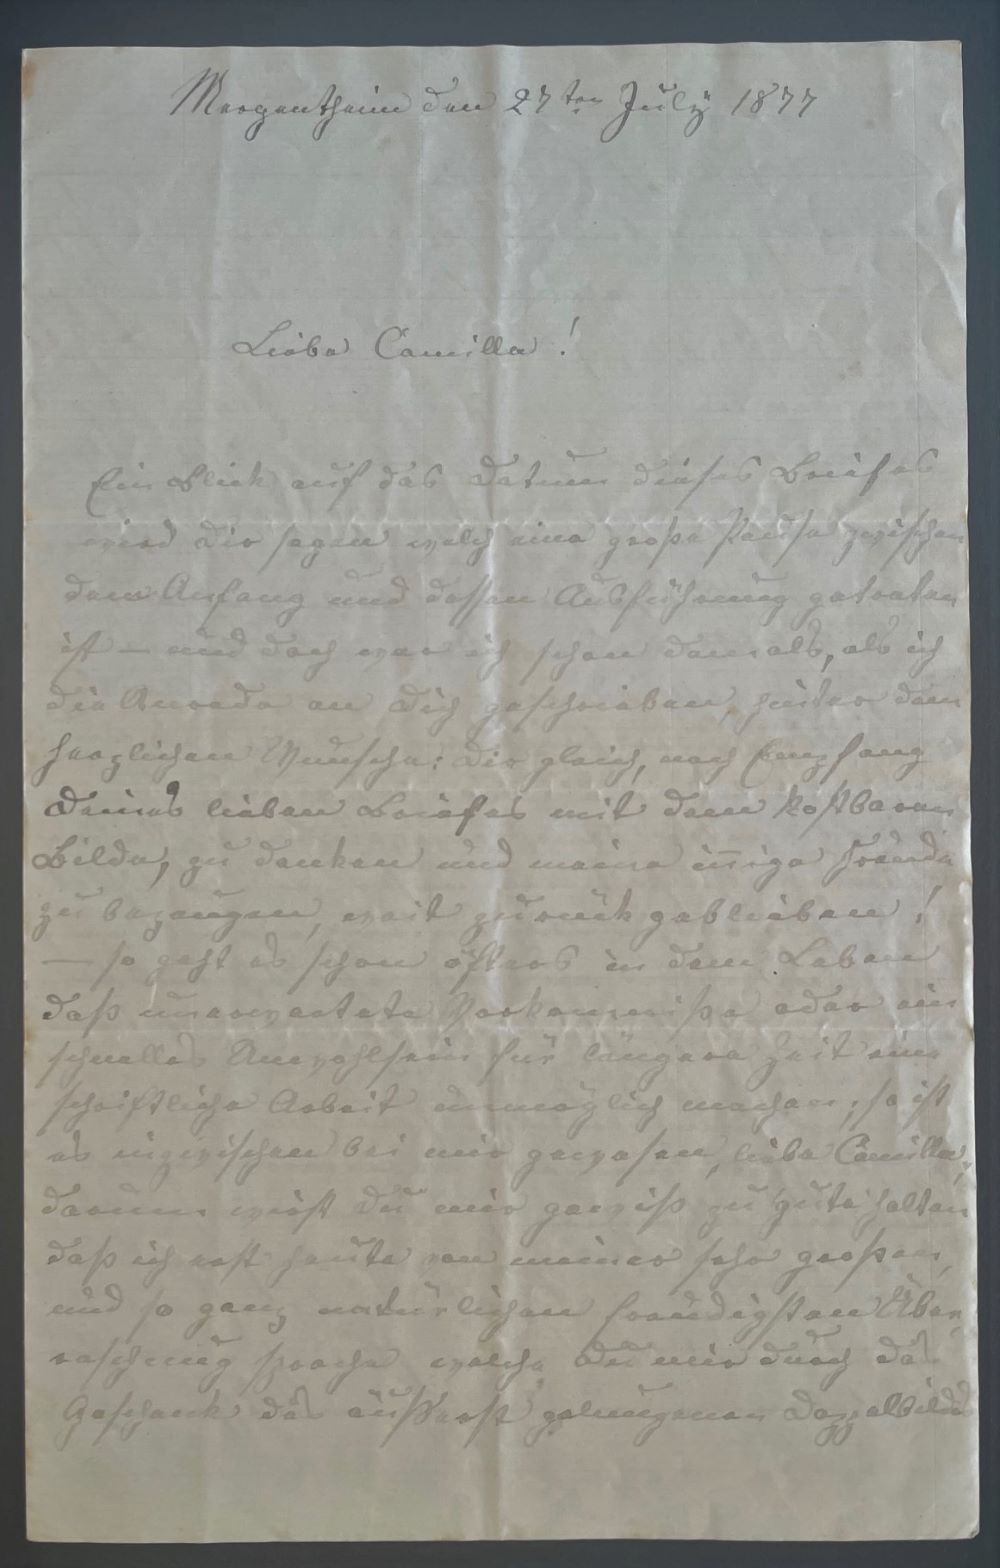 Mergentheim den 27ten July 1877
Liebe Camilla!
Ein Blick auf das Datum dieses Briefes
wird Dir sagen welch eine große Pause zwischen
dem Anfang und dessen Ausführung getreten
ist – und doch war ich schon damals, als ich
die Anrede an Dich geschrieben, hinter dem
herzlichen Wunsche: Dir gleich, nach Empfang
Deines lieben Briefes mit dem kostbaren
Bilde, zu danken und meine innige Freude
zu bezeugen, weit zurück geblieben!
– so geht es schon öfters in dem Leben
daß unerwartete Vorkommnisse oder ein
schnelles Unwohlsein für längere Zeit eine
schriftliche Arbeit unmöglich machen; so ist
es inzwischen bei mir gewesen, liebe Camilla!,
darum wirst Du mir gewiß zu gute halten
daß ich erst heute von meiner sehr großen,
und so ganz natürlichen freudigsten Über
raschung spreche welche Du mir durch das
Geschenk des äußerst gelungenen Doppelbild